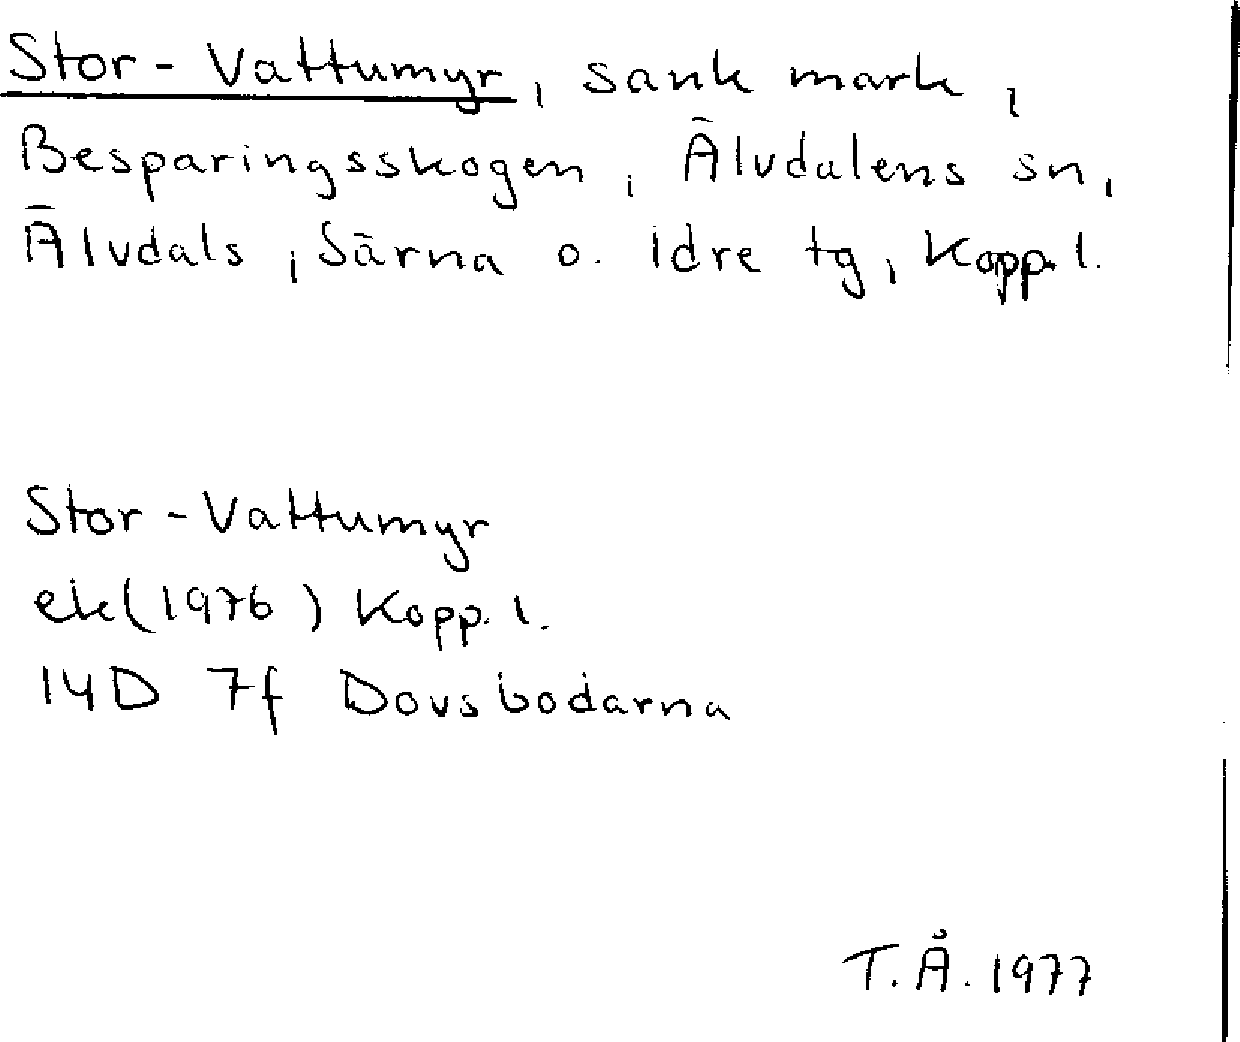 Stor-Vattumyr, sank mark,
Besparingsskogen, Älvdalens sn,
Älvdals, Särna o. Idre tg, Kopp. l.
Stor-Vattumyr
ek(1976) Kopp. l.
14D 7f Dovsbodarna
T.Å. 1977